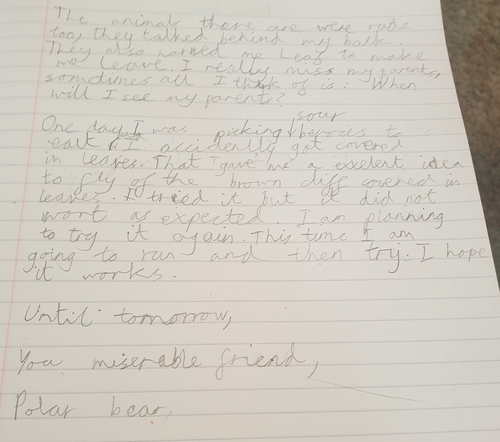 The animal there are were rude
too, they talked behind my back.
They also named me Leaf to make
me leave. I really miss my parents,
sometimes all I think of is: When
will I see my parents?
sour
One day, I was picking berries to
eat I accidently got covered
in leaves. That gave me a exelent idea
to fly of the brown cliff covered in
leaves. I tried it but it did not
wort as expected. I am planning
to try it again. This time I am
going to run and then try. I hope
it works.
Until tomorrow,
You miserable friend,
Polar bear,